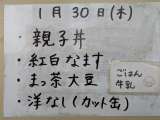 1月30日(木)
・親子丼
・紅白なます
・まっ茶大豆
・洋なし(カット缶)
ごはん
牛乳